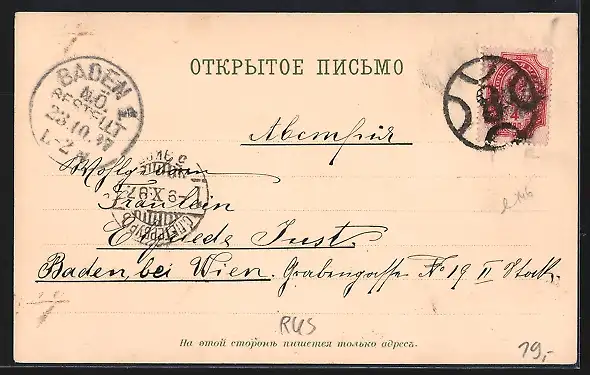 ОТКРЫТОЕ ПИСЬМО
BADEN 1
N.Ö.
BESTELLT
23.10.97
Австрія
Wohlgeboren
Fräulein
Just
Baden bei Wien. Grabengasse No 19 II Stock.
RUS
На этой сторонѣ пишется только адресъ.
19,-